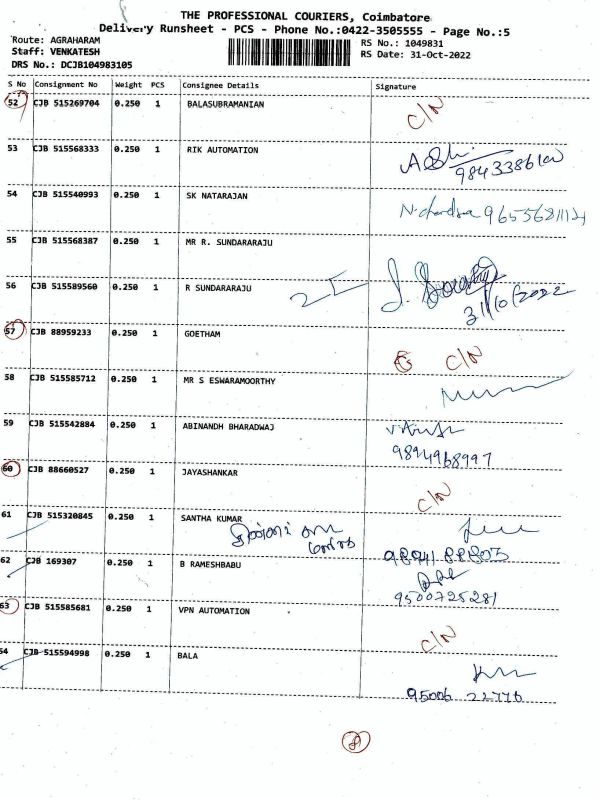 THE PROFESSIONAL COURIERS, Coimbatore
Delivery Runsheet - PCS - Phone No.:0422-3505555 - Page No.:5
Route: AGRAHARAM
Staff: VENKATESH
DRS No.: DCJB104983105
RS No.: 1049831
RS Date: 31-Oct-2022
S No Consignment No Weight PCS Consignee Details Signature
52 CJB 515269704 0.250 1 BALASUBRAMANIAN C/N
53 CJB 515568333 0.250 1 RIK AUTOMATION
54 CJB 515540993 0.250 1 SK NATARAJAN
55 CJB 515568387 0.250 1 MR R. SUNDARARAJU
56 CJB 515589560 0.250 1 R SUNDARARAJU
31/10/2022
57 CJB 88959233 0.250 1 GOETHAM C/N
58 CJB 515585712 0.250 1 MR S ESWARAMOORTHY
59 CJB 515542884 0.250 1 ABINANDH BHARADWAJ
9894968997
60 CJB 88660527 0.250 1 JAYASHANKAR C/N
61 CJB 515320845 0.250 1 SANTHA KUMAR
62 CJB 169307 0.250 1 B RAMESHBABU
9500725281
63 CJB 515585681 0.250 1 VPN AUTOMATION C/N
54 CJB 515594998 0.250 1 BALA
95006 22776
8